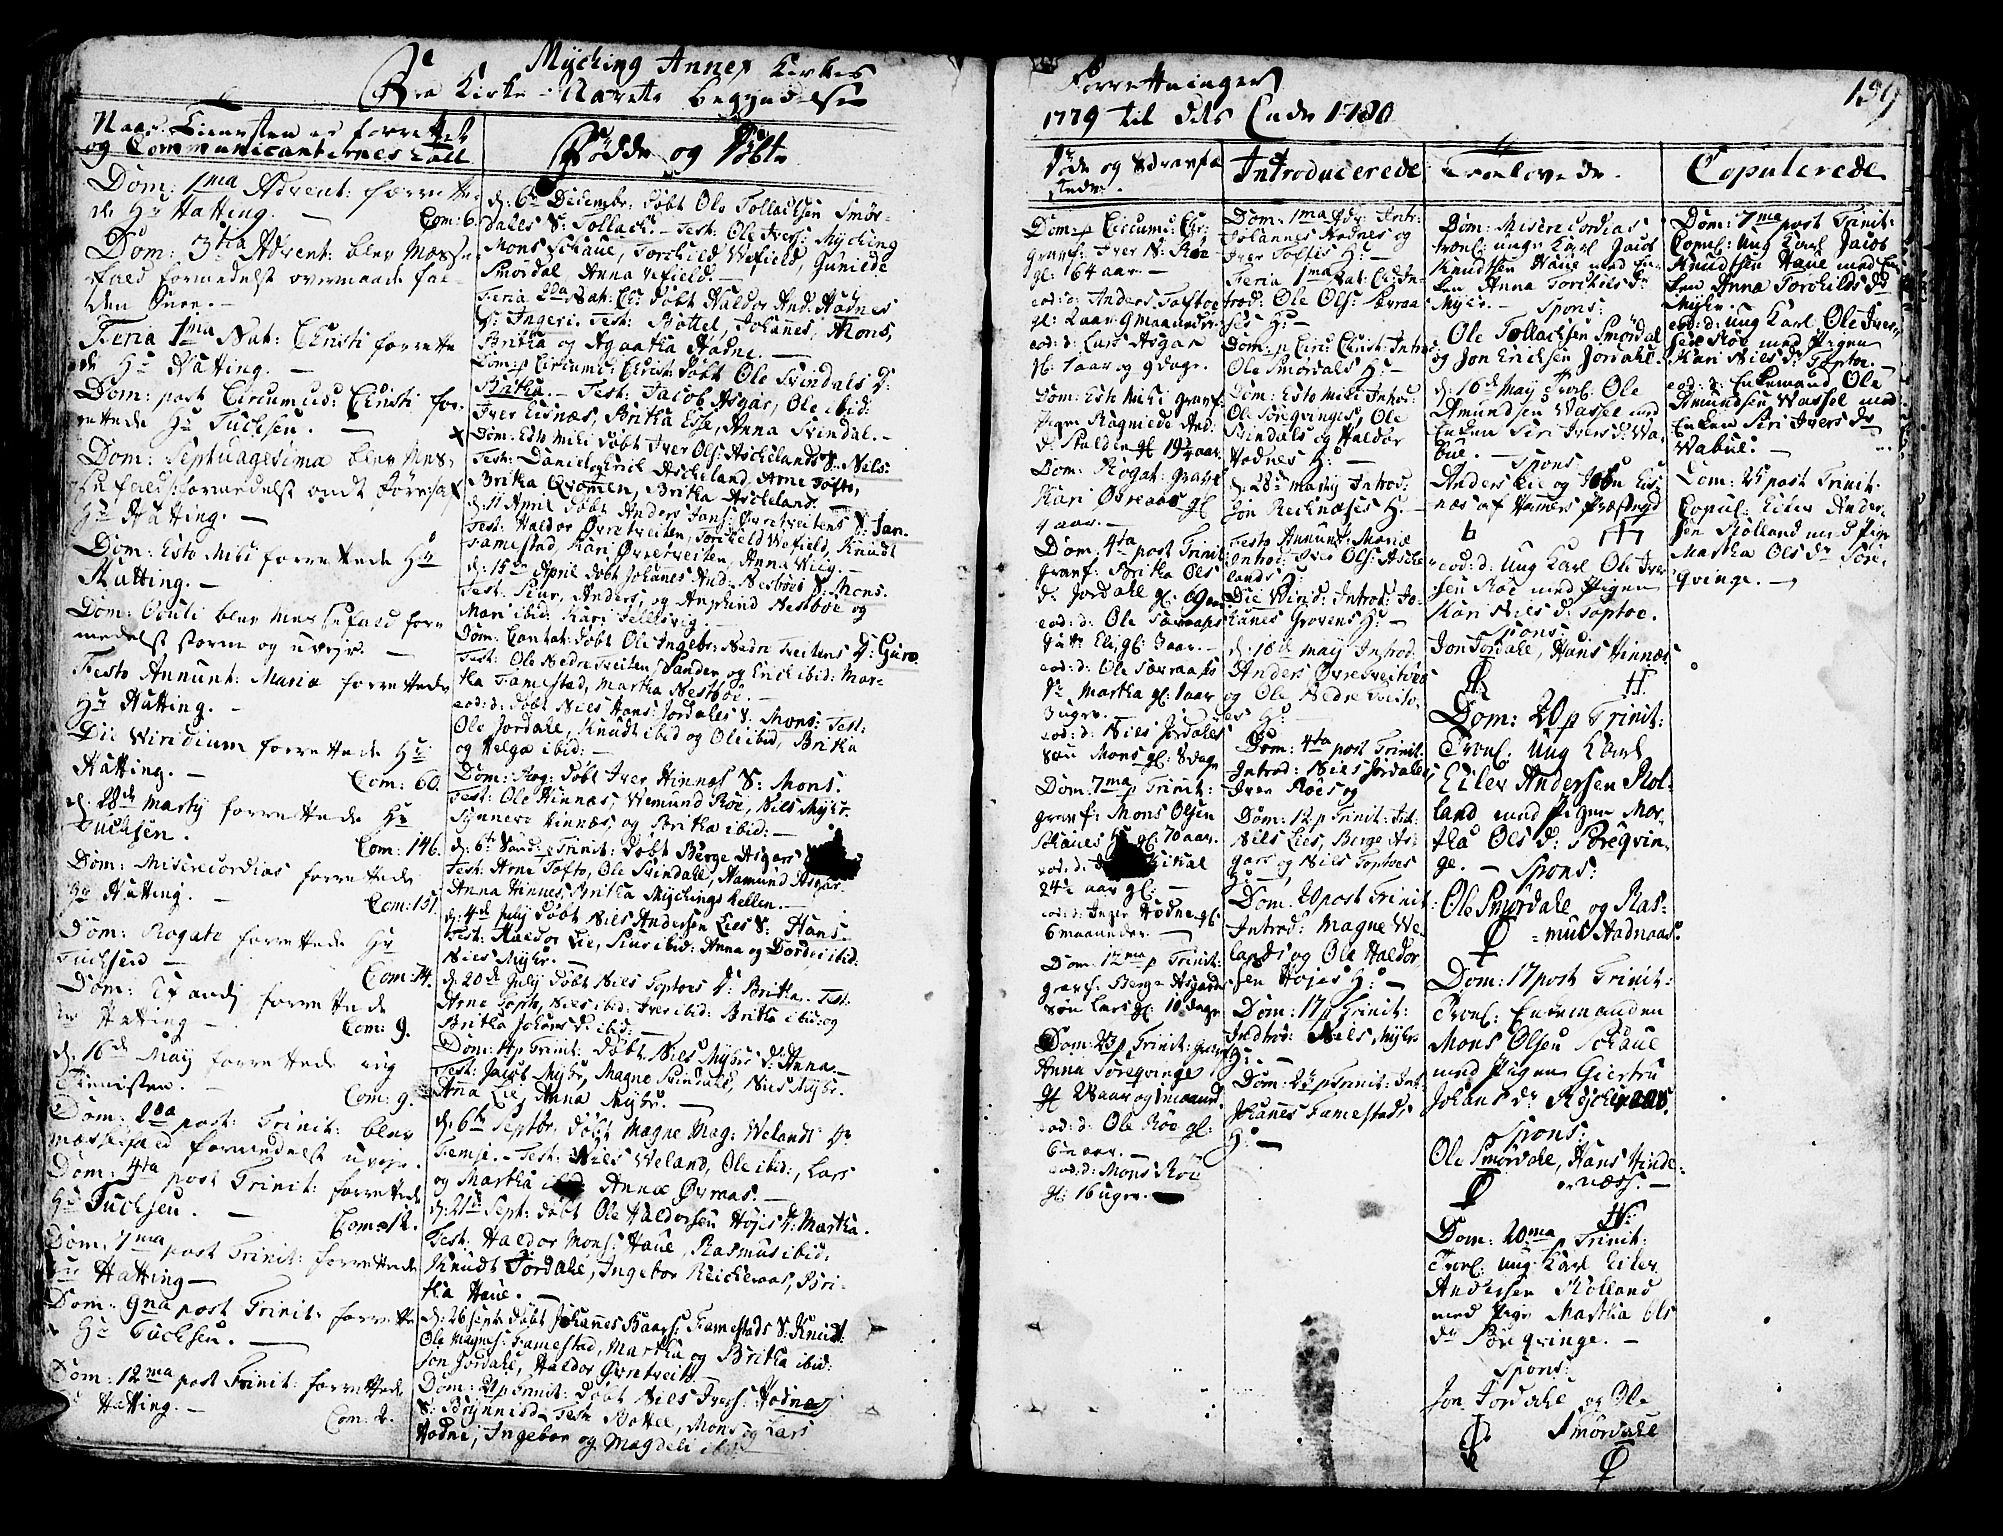 Mycking Annex Kirkes
Fra Kirke-Aarets begyndelse
Naar Tienesten er forrettet
og Communicanternes tall
Dom: 1ma Advent: forrette
de Hr Hatting. —
Com: 6.
Dom: 3tia Advent: blev Messe
fald formedelst overmaade
den Snee. —
Feria 1ma Nat: Christi forrette
de Hr Hatting. —
Dom: post Circumcis: Christi for-
rettede Hr Tuchsen. —
Dom: Septuagesima blev Mes-
se fald formedelst ondt føre
Hr Hatting. —
Dom: Esto Mihi forrettede Hr
Hatting. —
Dom: Oculi blev Messefald for
medelst storm og uveyr. —
Festo Annunt: Mariæ forrettede
Hr Hatting. —
Die Viridium forrettede Hr
Hatting. —
Com: 60.
d: 28de Martij forrettede Hr
Tuchsen.
Com: 146.
Dom: Misericordias forrettede
Hr Hatting. —
Com: 151.
Dom: Rogate forrettede Hr
Tuchsen —
Com: 74.
Dom: Exaudj forrettede
Hr Hatting —
Com: 9.
d: 16de May forrettede jeg
Tienisten. —
Com: 9.
Dom: 2da post: Trinit: blev
messefald formedelst uveyr.
Dom: 4ta post Trinit: forrettede
Hr Tuchsen. —
Dom: 7ma post Trinit: forrettede
Hr Hatting —
Dom: 9na post Trinit: forrette
de Hr Tuchsen. —
Dom: 12ma post Trinit: forrettede
Hr Hatting. —
Com: 2.
Fødde og Døbte
d: 6te Decembr: døbt Ole Tollachsen Smør-
dales S: Tollach. — Test: Ole Ivers: Mycking
Mons Schaue, Torchild Wefield, Gunilde
Smørdal Anna Vefield. —
Feria 2da Nat: Chr: døbt Haldor And: Hodnes
D: Ingeri. Test: Bottel, Johanes, Mons,
Britha og Agaatha Hodne. —
Dom: p Circumc: Christi døbt Ole Svindals D:
Britha. — Test: Jacob Asgar, Ole ibid:
Iver Eisnæs, Britha Esse, Anna Svindal. —
Dom: Esto Mihi døbt Iver Ols: Aschelands S: Nils:
Test: Daniel Erik Ascheland, Arne Tofte,
Britha Qvomen, Britha Ascheland. —
d: 11 April døbt Anders Jans: Øvretveitens S: Jan.
Test: Haldor Øvretveiten, Torchild Wefield, Knudt
Famestad, Kari Øvretveiten, Anna Wiig. —
d: 15de April døbt Johanes And: Nesbøes S: Mons.
Test: Siur, Anders og Amplund Nestbøe og
Mari ibid: Kari Tellevig. —
Dom: Cantat: døbt Ole Ingebr: Nedre Tveitens D: Guro
Test: Ole Nedre Tveiten, Sander og Erich ibid: Mar-
tha Famestad, Martha Nestbøe. —
eod: d: døbt Niels Hans: Jordales S: Mons: Test:
Ole Jordale, Knudt ibid og Ole ibid, Britha
og Helga ibid: —
Dom: Rog: døbt Iver Hinnæs S: Mons.
Test: Ole Hinnæs, Wemund Røe, Niels Myhr
Synneve Hinnæs, og Britha ibid: —
d: 6te Sønd: p Trinit: døbt Berge Asgars
Test: Arne Tofte, Ole Svindale, Aamund Asgar.
Anna Hinnes, Britha Myckings kellen. —
d: 4de July døbt Niels Andersen Lies S: Hans.
Test: Haldor Lie, Siur ibid: Anna og Dordei ibid:
Niels Myhr. —
d: 20de July døbt Niels Toptoes D: Britha. Test:
Arne Topte, Nils ibid: Iver ibid: Britha ibid: og
Britha Johans D: ibid: —
Dom: 14 p Trinit: døbt Niels Myhrs D: Anna —
Test: Jacob Myhr, Magne Svindale, Niels Myhr.
Ana Lie, Anna Myhr. —
d: 6te Septbr: døbt Magne Mag: Welands D:
Femje. — Test: Niels Weland, Ole ibid:, Lars
og Martha ibid: Annæ Øvraas. —
d: 21de Sept: døbt Ole Haldorsen Højes D: Martha.
Test: Haldor Mons: Haue, Rasmus ibid:
Knudt Jordale, Ingebor Reicheraas, Bri-
tha Haue. —
d: 26 Septr døbt Johanes Baars: Famestads S: Knudt
Ole Magnes: Famestad, Martha og Britha ibid:
Jon Jordale, Haldor Øvretveit. —
Dom: 21 p Trinit: døbt Niels Ivers: Hodnes
S: Brynnild. Test: Bottel, Mons og Lars
Hodne, Ingebor og Magdeli ibid: —
Forretninger
139
1779 til dets Ende 1780
Døde og Begravede
Dom: p Circumc: Chr:
Gravf: Iver N: Røe
gl: 64 aar. —
eod: d: Anders Toftoe
gl: 2 aar 9 maaneder.
eod: d: Lars Asgar
gl: 1 aar og 9 dage.
Dom: Esto Mihi gravf:
Pigen Ragnilde And:
D: Stalden gl 19½ aar.
Dom: Rogat: gravf
Kari Øvreaas gl
9 aar. —
Dom: 4ta post Trinit:
gravf: Britha Ols
D: Jordale gl: 69 aar
eod: d: Ole Særvaaps
Dattr Eli gl: 3 aar. —
eod: d: Ole Særvaaps
Dr Martha gl: 1 aar
3 uger.
eod: d: Niels Jordales
Søn Mons gl: 8 dage
Dom: 7ma p Trinit:
gravf: Mons Olsen
Schaues H: gl: 70 aar.
eod: d:
24½ aar gl: —
eod: d: Inger Hodne gl:
6 maaneder. —
Dom 12ma p Trinit:
gravf: Berge Asgards
Søn Lars gl: 10 dage
Dom: 23 p Trinit: gravf
Anna Søreqvinge
gl 28 aar og 1 maaned
eod: d: Ole Røe gl:
6 aar. —
eod: d: Mons Røe
gl: 16 uger. —
Introducerede
Dom: 1ma Adv: Intr:
Johannes Hodnes og
Iver Toftes H: —
Feria 1ma Nat: Chr: In-
trod: Ole Ols: Særvaa-
ges H: —
Dom: p Circ: Christ: Introd
Ole Smørdals H: —
Dom: Esto Mihi Introd:
Ole Søreqvinges, Ole
Svindals og Haldor
Hodnes H: —
d: 28de Martij Introd:
Jon Rechnæses H: —
Festo Annunt: Mariæ
Introd: Iver Ols: Asche
lands H:
Die Virid: Introd: Jo-
hanes Grovens H: —
d: 16de May Introd:
Anders Øvretveitens
og Ole Nedre Tveite-
es H: —
Dom: 4ta post Trinit:
Introd: Niels Jordales
Iver Røes og
Dom: 12 p Trinit: Int:
Nils Lies, Berge As-
gars og Niels Toptoes
H: —
Dom: 20 post Trinit:
Introd: Magne We-
lands og Ole Haldor
sen Højes H: —
Dom: 17 p Trinit:
Introd: Niels Myhrs
H: —
Dom: 25 p Trinit: Int:
Johanes Famestads
H: —
Troelovede
Dom: Misericordias
troel: unge Karl Jacob
Knudtsen Haue med En-
ken Anna Torchilds D:
Myhr. — Spons:
Ole Tollachsen Smørdal
og Jon Erichsen Jordale.
d: 16de May Trol: Ole
Amundsen Wassel med
Enken Siri Ivers D: Wa-
bue. — Spons:
Anders Lie og Eis-
næs af Hamers Præstegd
eod: d: Ung Karl Ole Iver
sen Røe med Pigen
Kari Niels D: Toptoe.
Spons:
Jon Jordale, Hans Hinnæs
H.
Dom: 20 p Trinit:
Trol: Ung Karl
Eiler Andersen Røl-
land med Pigen Mar-
tha Ols D: Søreqvin-
ge. — Spons:
Ole Smørdale og Ras-
mus Aadnaas.
Dom: 17 post Trinit:
Trol: Enkemanden
Mons Olsen Schaue
med Pigen Giertru
Johans Dr Rycheraas.
Spons:
Ole Smørdale, Hans Hinde-
næss. —
H:
Dom: 20ma p Trinit:
Trol: Ung Karl Eiler
Andersen Rølland
med Pige Martha Ols
Dr Søreqvinge. —
Spons:
Jon Jordale og Ole
Smørdale
Copulerede
Dom: 7ma post Trinit:
Copul: Ung Karl Jacob
Knudtsen Haue med En-
ken Anna Torchilds Dr
Myhr. —
eod: d: Ung Karl Ole Iver-
sen Røe med Pigen
Kari Niels Dr Toptoe.
eod: d: Enkemand Ole
Amundsen Wassel med
Enken Siri Ivers Dr
Wabue. —
Dom: 25 post Trinit:
Copul: Eiler Ander-
sen Rølland med Pige
Martha Ols Dr Søre-
qvinge. —